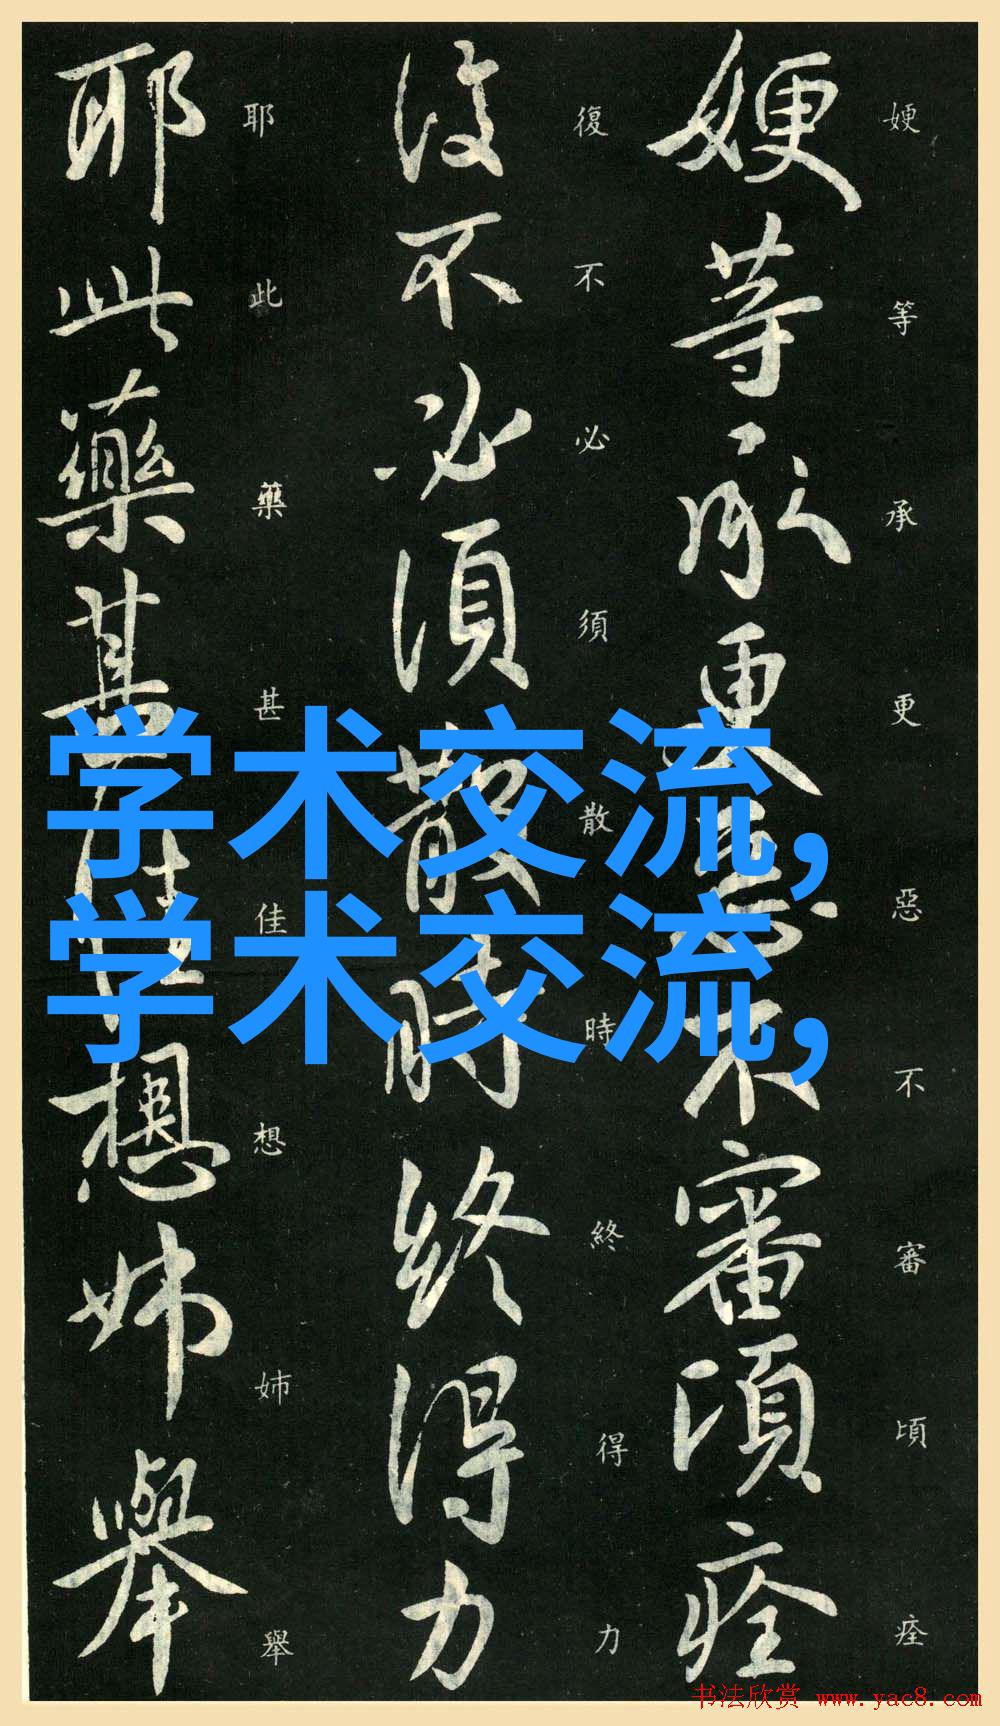 㛐等承更惡不審頃痊
㛐等承更惡不審頃痊
復不必須散時終得力
復不必須散時終得力
耶此藥甚佳想姊舉
耶此藥甚佳想姊舉
学术交流,
学术交流,
书法欣赏 www.yac8.com